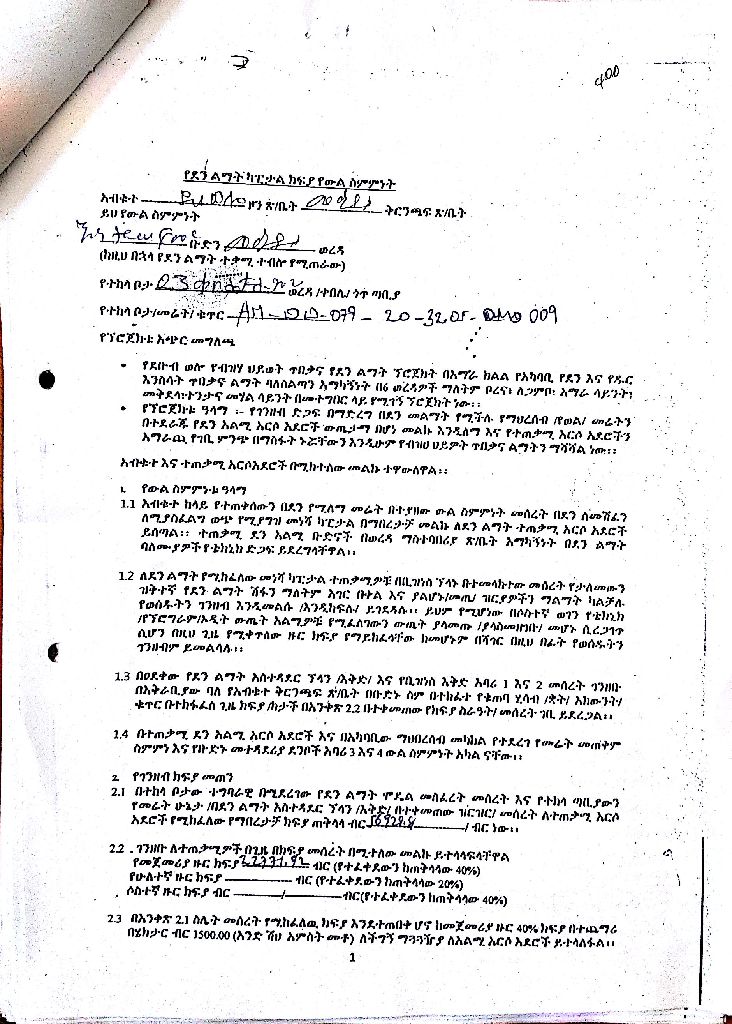 400
የደን ልማት ካፒታል ክፍያ የውል ስምምነት
አብቁተ ዞን ጽ/ቤት ቅርንጫፍ ጽ/ቤት
ይህ የውል ስምምነት
ቡድን ወረዳ
(ከዚህ በኋላ የደን ልማት ተቃሚ ተብሎ የሚጠራው)
የተከላ ቦታ 03 ወረዳ /ቀበሌ/ ነጥ ጣቢያ
የተከላ ቦታ/መሬት/ ቁጥር AM-DD-079-20-32 009
የፕሮጀክቱ አጭር መግለጫ
• የደቡብ ወሎ የብዝሃ ህይወት ጥበቃና የደን ልማት ፕሮጀክት በአማራ ክልል የአካባቢ የደን እና የዱር
እንስሳት ጥበቃና ልማት ባለስልጣን አማካኝነት በ6 ወረዳዎች ማለትም ቦረና፣ ለጋምቦ፣ አማራ ሳይንት፣
መቅደላ፣ተንታና መሃል ሳይንት በመተግበር ላይ የሚገኝ ፕሮጀክት ነው፡፡
• የፕሮጀክቱ ዓላማ ፡- የገንዘብ ድጋፍ በማድረግ በደን መልማት የሚችሉ የማህረሰብ /የወል/ መሬትን
በተደራጁ የደን አልሚ አርሶ አደሮች ውጤታማ በሆነ መልኩ እንዲለማ እና የተጠቃሚ አርሶ አደሮችን
አማራጪ የገቢ ምንጭ በማስፋት ኑሯቸውን እንዲሁም የብዝሃ ህይዎት ጥበቃና ልማትን ማሻሻል ነው፡፡
አብቁተ እና ተጠቃሚ አርሶአደሮች በሚከተለው መልኩ ተዋውለዋል፡፡
1. የውል ስምምነቱ ዓላማ
1.1 አብቁተ ከላይ የተጠቀሰውን በደን የሚለማ መሬት በተያዘው ውል ስምምነት መሰረት በደን ለመሸፈን
ለሚያስፈልግ ወጭ የሚያግዝ መነሻ ካፒታል በማበረታቻ መልኩ ለደን ልማት ተጠቃሚ አርሶ አደሮች
ይሰጣል፡፡ ተጠቃሚ ደን አልሚ ቡድኖች በወረዳ ማስተባበሪያ ጽ/ቤት አማካኝነት በደን ልማት
ባለሙያዎች የቴክኒክ ድጋፍ ይደረግላቸዋል፡፡
1.2 ለደን ልማት የሚከፈለው መነሻ ካፒታል ተጠቃሚዎቹ በቢዝነስ ፕላኑ በተመላከተው መሰረት የታለመውን
ዝቅተኛ የደን ልማት ሽፋን ማለትም እገር በቀል እና ያልሆኑ/መጤ/ ዝርያዎችን ማልማት ካልቻሉ
የወሰዱትን ገንዘብ እንዲመልሱ /እንዲከፍሉ/ ይገደዳሉ፡፡ ይህም የሚሆነው በሶስተኛ ወገን የቴክኒክ
/የፕሮግራም/ኦዲት ውጤት አልሚዎቹ የሚፈለገውን ውጤት ያላመጡ /ያላስመዘገቡ/ መሆኑ ሲረጋገጥ
ሲሆን በዚህ ጊዜ የሚቀጥለው ዙር ክፍያ የማይከፈላቸው ከመሆኑም በሻገር በዚህ በፊት የወሰዱትን
ገንዘብም ይመልሳሉ፡፡
1.3 በፀደቀው የደን ልማት አስተዳደር ፕላን /እቅድ/ እና የቢዝነስ እቅድ አባሪ 1 እና 2 መሰረት ገንዘቡ
በአቅራቢያው ባለ የአብቁተ ቅርንጫፍ ጽ/ቤት በቡድኑ ስም በተከፈተ የቁጠባ ሂሳብ /ቋት/ አካውንት/
ቁጥር በተከፋፈለ ጊዜ ክፍያ /ከታች በአንቀጽ 2.2 በተቀመጠው የክፍያ ስራዓት/ መሰረት ገቢ ይደረጋል፡፡
1.4 በተጠቃሚ ደን አልሚ አርሶ አደሮች እና በአካባቢው ማህበረሰብ መካከል የተደረገ የመሬት መጠቀም
ስምምነ እና የቡድኑ መተዳደሪያ ደንቦች አባሪ 3 እና 4 ውል ስምምነት አካል ናቸው፡፡
2. የገንዘብ ክፍያ መጠን
2.1 በተከላ ቦታው ተግባራዊ በሚደረገው የደን ልማት ሞዴል መስፈረት መሰረት እና የተከላ ጣቢያውን
የመሬት ሁኔታ /በደን ልማት አስተዳደር ፕላን /እቅድ/ በተቀመጠው ዝርዝር/ መሰረት ለተጠቃሚ አርሶ
አደሮች የሚከፈለው የማበረታቻ ክፍያ ጠቅላላ ብር / ብር ነው፡፡
2.2 . ገንዘቡ ለተጠቃሚዎች በጊዜ በክፍያ መሰረት በሚተለው መልኩ ይተላለፍላቸዋል
የመጀመሪያ ዙር ክፍያ 22771.92 ብር (የተፈቀደውን ከጠቅላላው 40%)
የሁለተኛ ዙር ክፍያ ብር (የተፈቀደውን ከጠቅላላው 20%)
ሶስተኛ ዙር ክፍያ ብር / ብር(የተፈቀደውን ከጠቅላላው 40%)
2.3 በአንቀጽ 2.1 ስሌት መሰረት የሚከፈለዉ ክፍያ እንደተጠበቀ ሆኖ ከመጀመሪያ ዙር 40% ክፍያ በተጨማሪ
በሄክታር ብር 1500.00 (አንድ ሽህ አምስት መቶ) ለችግኝ ማጓጓዥያ ለአልሚ አርሶ አደሮች ይተላለፋል፡፡
1